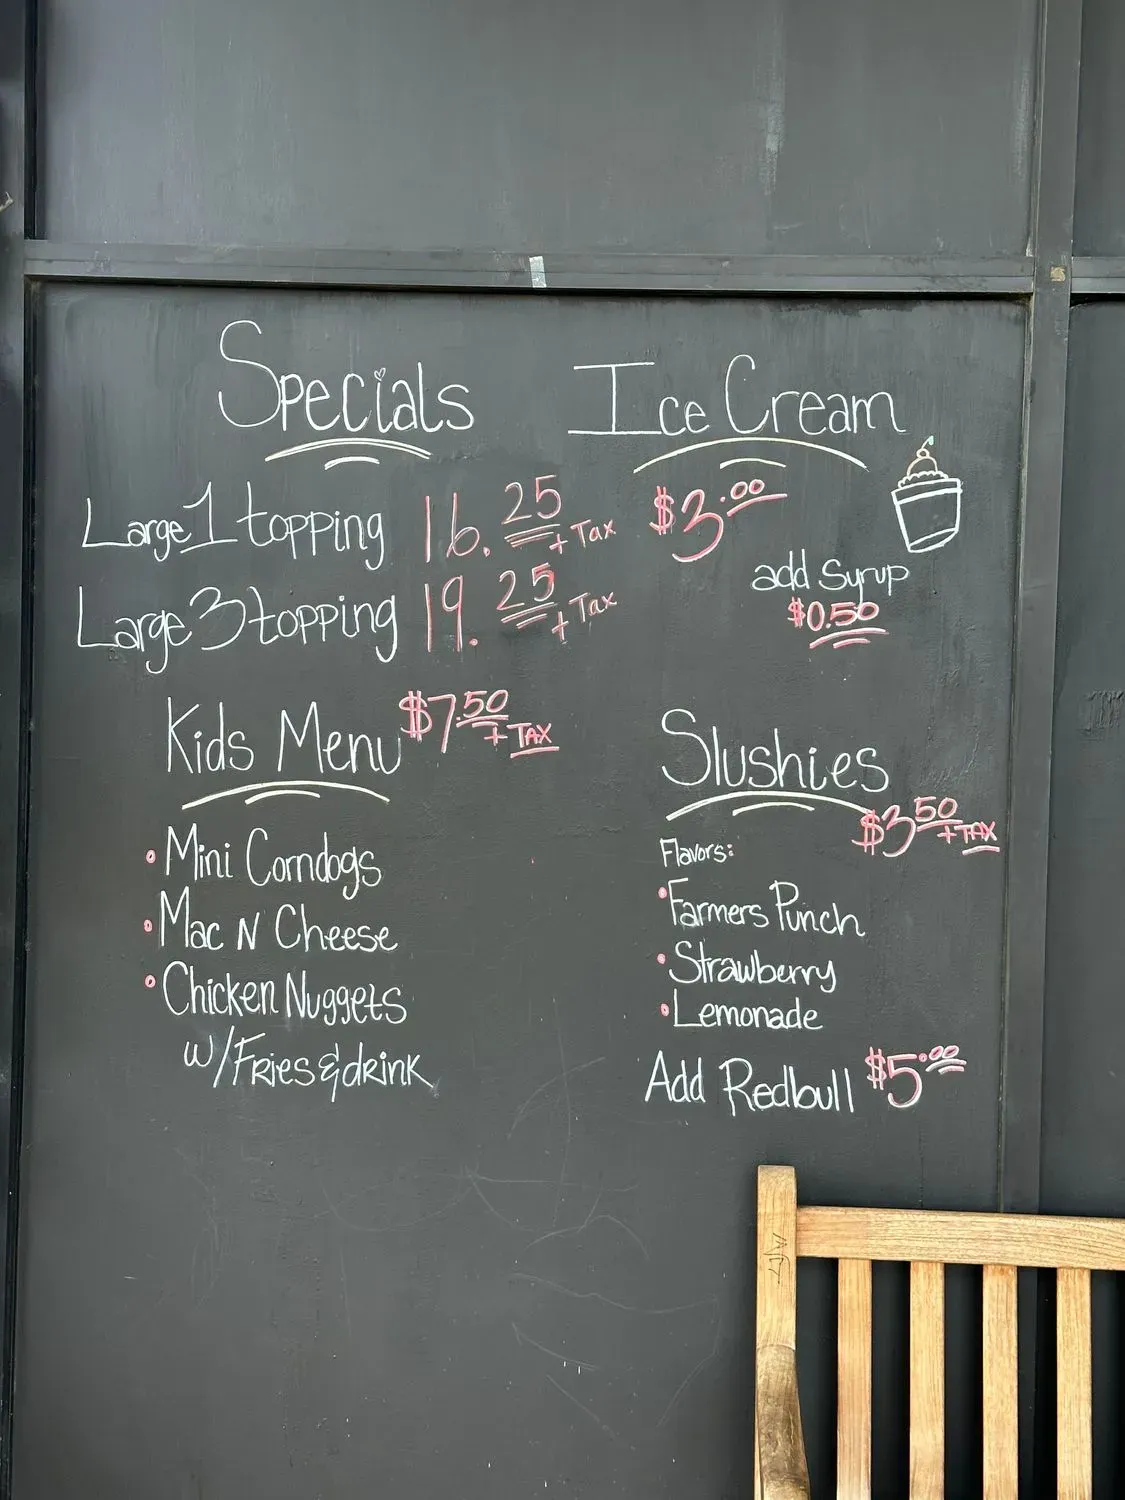 Specials
Large 1 topping 16.25 + Tax
Large 3 topping 19.25 + Tax
Kids Menu $7.50 + TAX
• Mini Corndogs
• Mac N Cheese
• Chicken Nuggets
w/Fries & drink
Ice Cream
$3.00
add Syrup
$0.50
Slushies
$3.50 + TAX
Flavors:
• Farmers Punch
• Strawberry
• Lemonade
Add Redbull $5.00